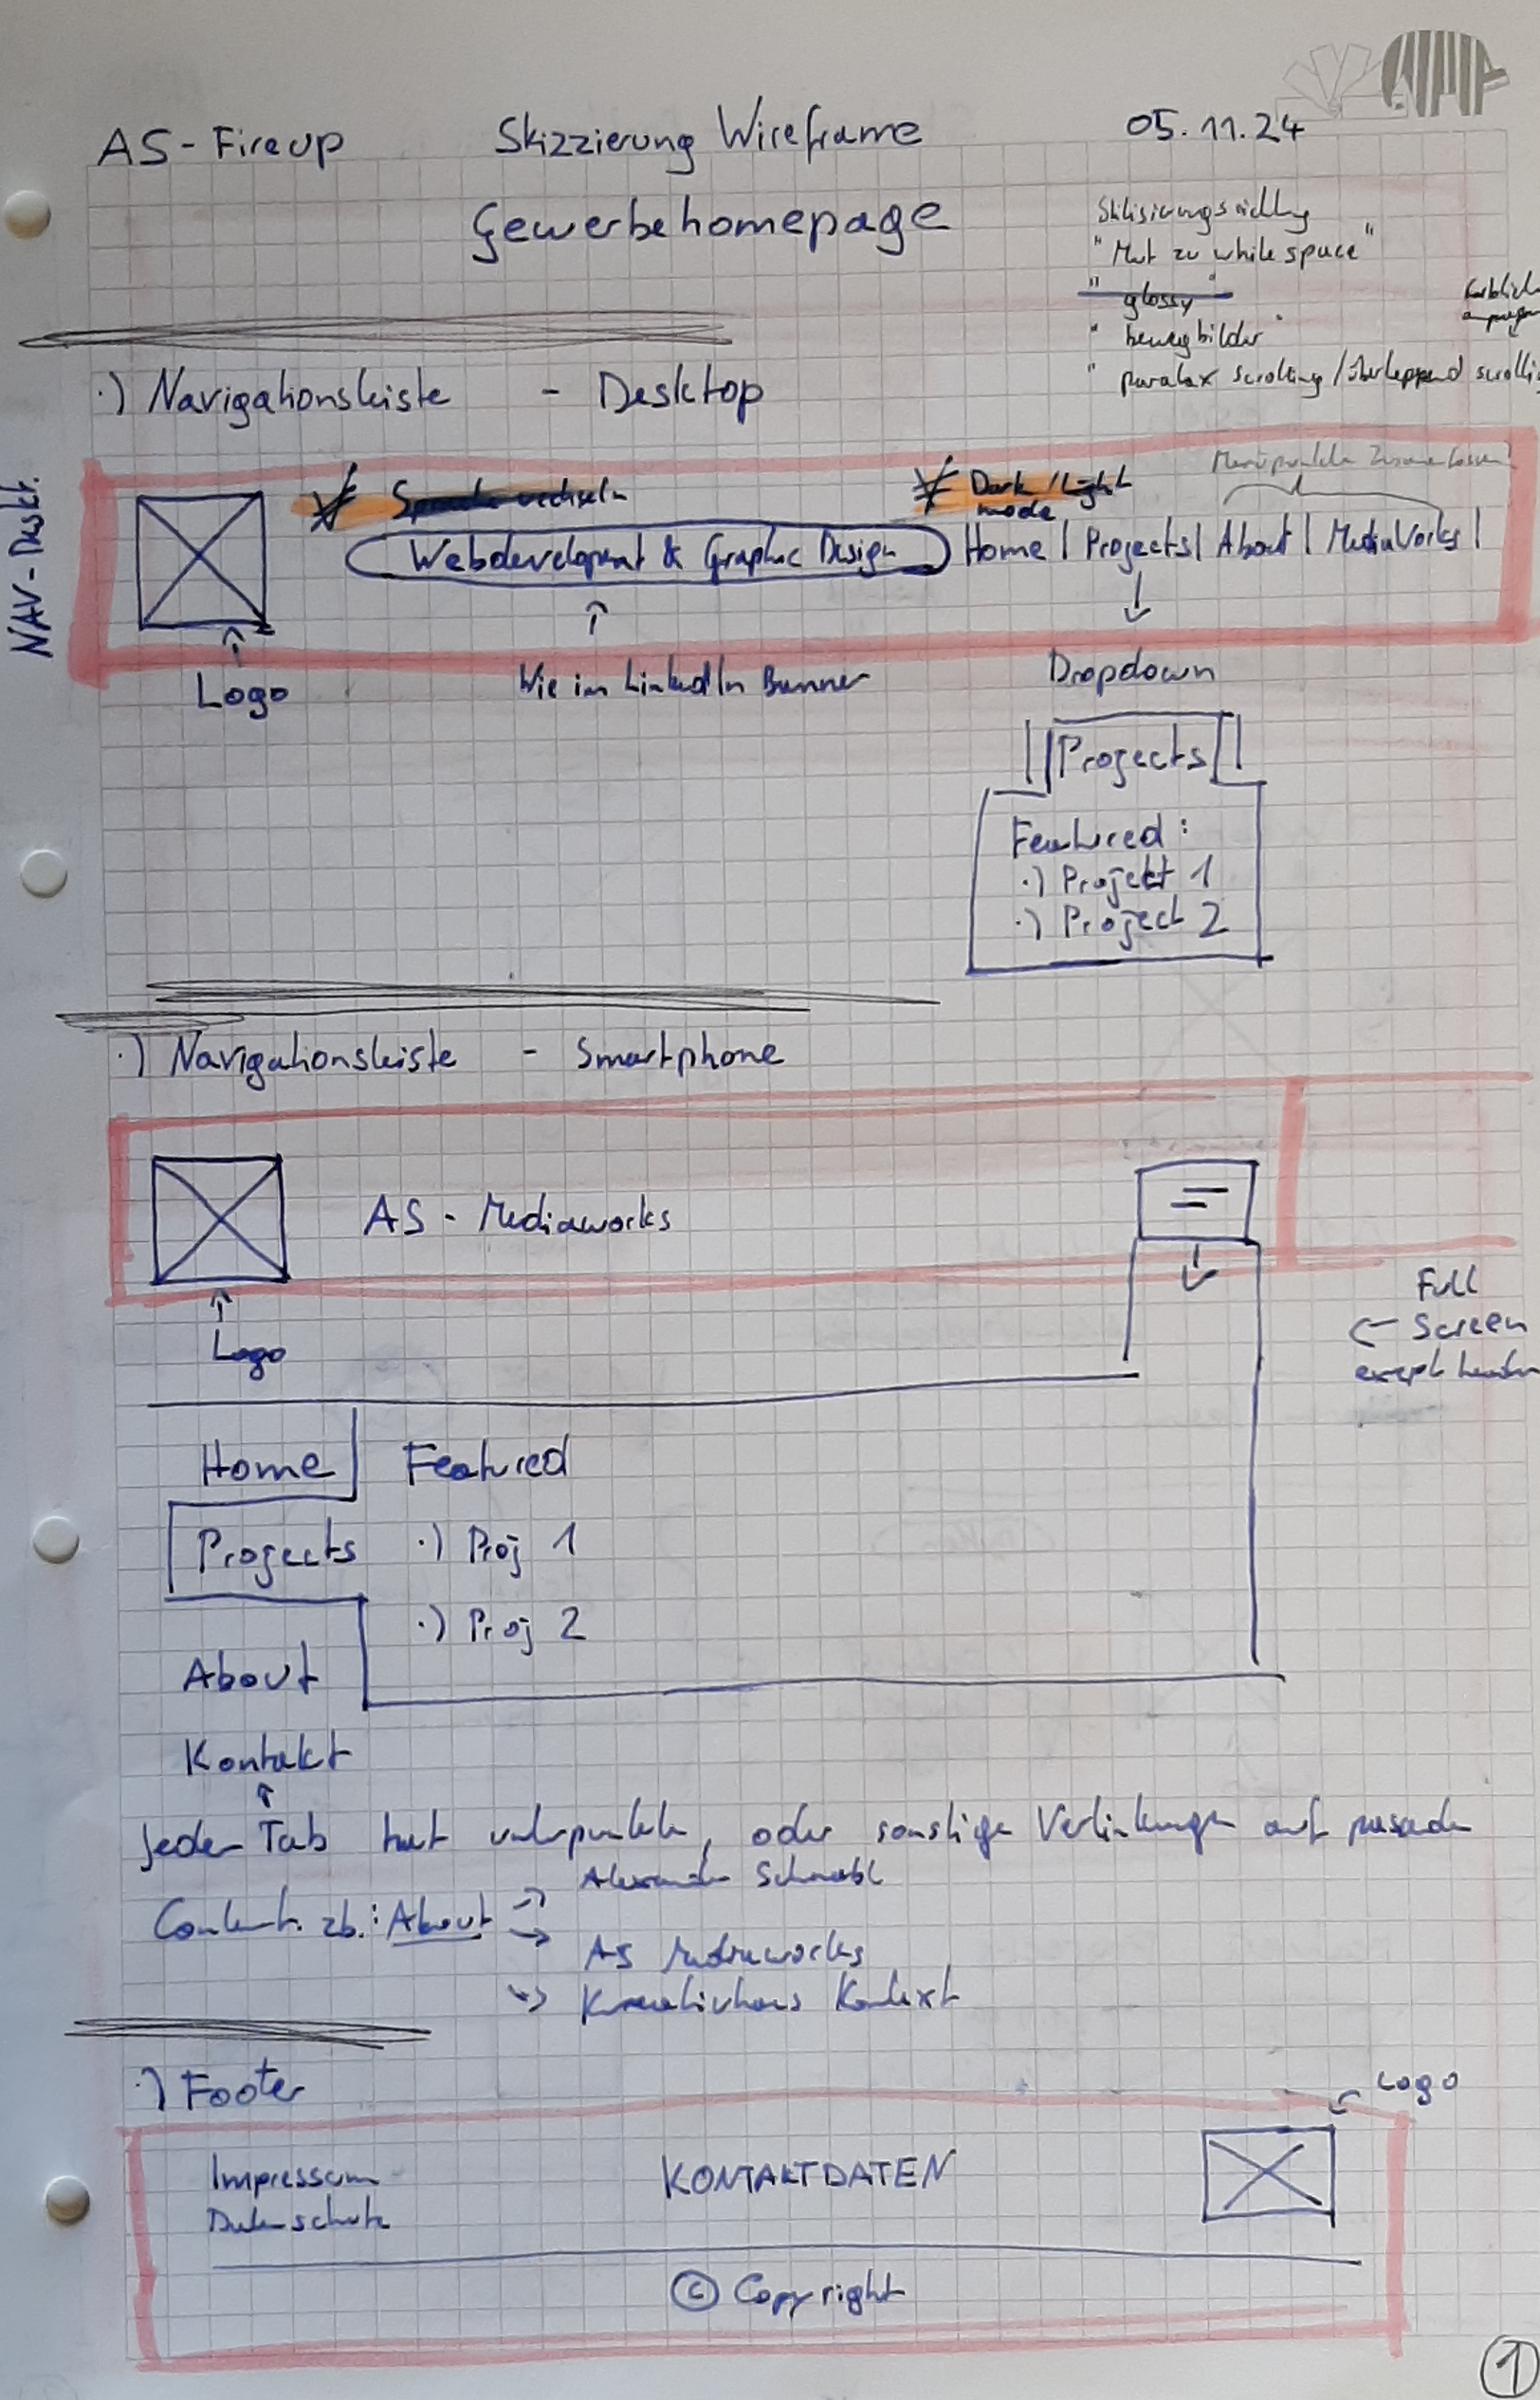 AS-Fireup Skizzierung Wireframe 05.11.24
Gewerbehomepage
Stilisierungsrichtung
"Mut zu white space"
"glossy"
"bewegbilder"
" paralax scrolling / überlappend
·) Navigationsleiste - Desktop
NAV-Deskt.
Sprache wechseln
Dark/Light
mode
Menüpunkte Zusammenfassen
Webdevelopment & Graphic Design
Home | Projects | About | MediaWorks |
Logo
Wie im LinkedIn Banner
Dropdown
Projects
Featured:
·) Projekt 1
·) Project 2
·) Navigationsleiste - Smartphone
AS - Mediaworks
Logo
Full
← Screen
except
Home
Featured
Projects
·) Proj 1
·) Proj 2
About
Kontakt
Jeder Tab hat unterpunkte, oder sonstige Verlinkungen auf
Content. zb.: About
→ Alexander
→ AS Mediaworks
→ Kontext
·) Footer
Logo
Impressum
Datenschutz
KONTAKTDATEN
© Copyright
1